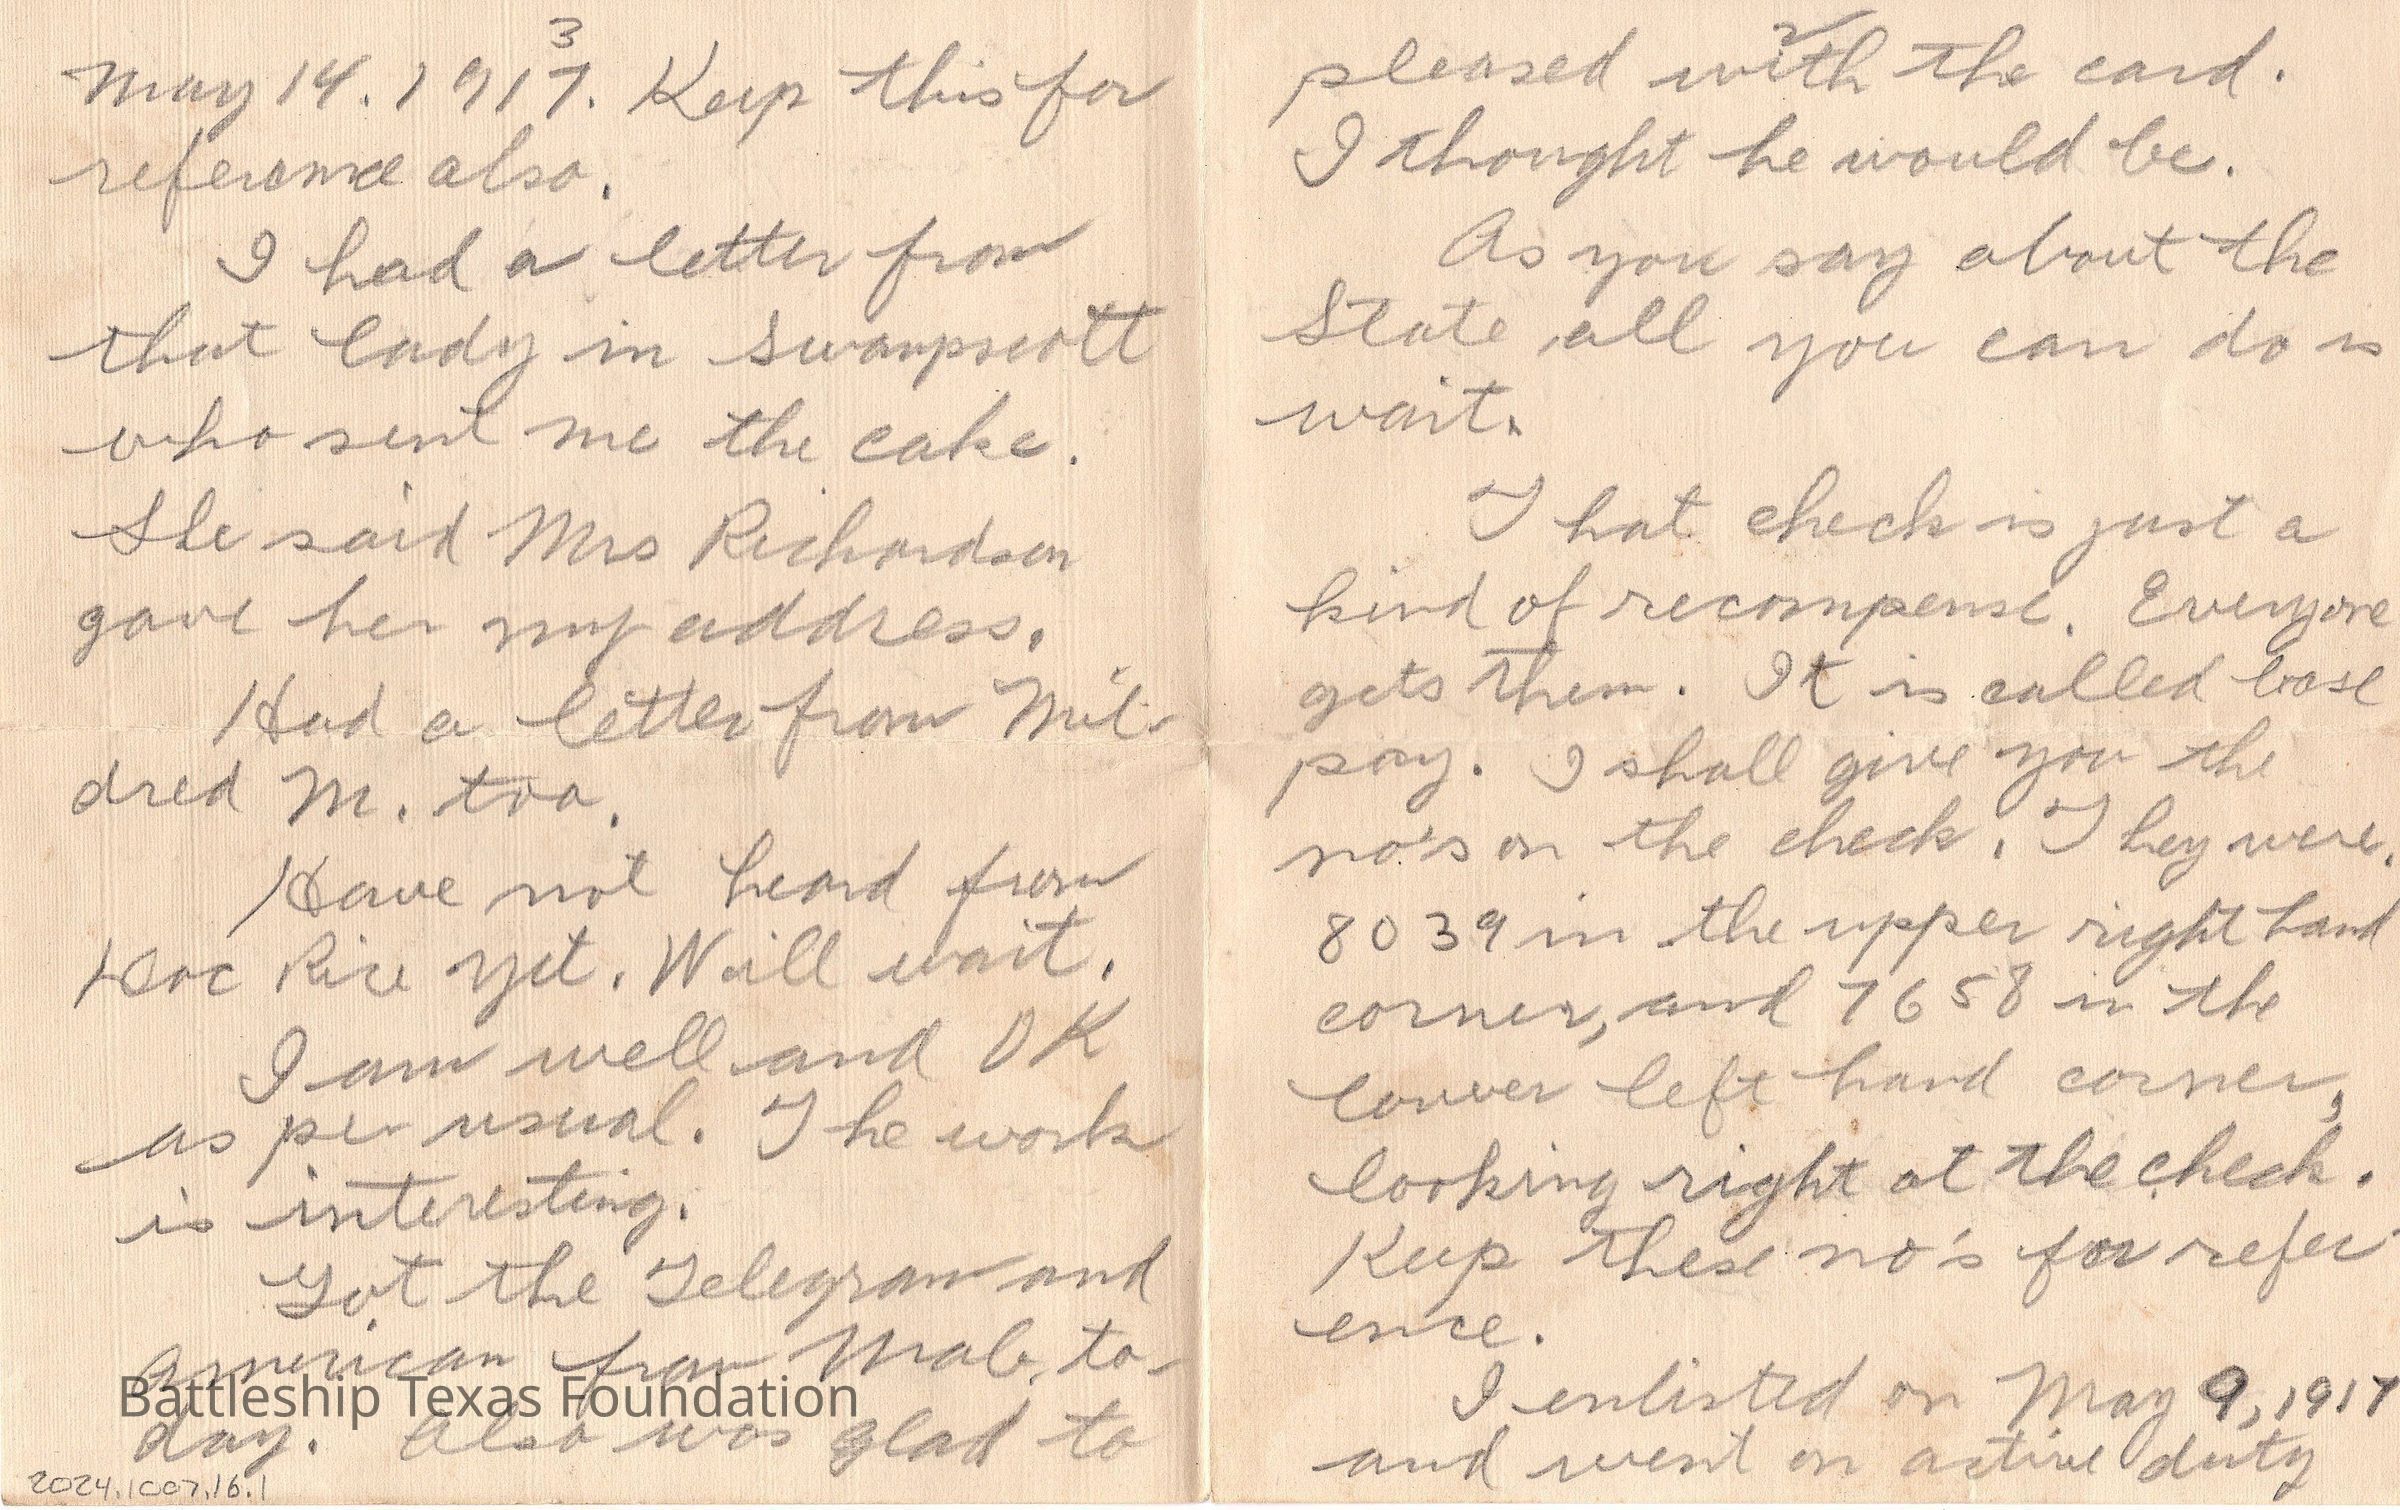 3
May 14. 1917. Keep this for
reference also.
I had a letter from
that lady in Swampscott
who sent me the cake.
She said Mrs Richardson
gave her my address.
Had a letter from Mil-
dred M. too.
Have not heard from
Doc Rice yet. Will wait.
I am well and OK
as per usual. The work
is interesting.
Got the Telegram and
American from Mab. to-
day. Also was glad to
Battleship Texas Foundation
2024.1007.16.1
2
pleased with the card.
I thought he would be.
As you say about the
State, all you can do is
wait.
That check is just a
kind of recompense. Everyone
gets them. It is called base
pay. I shall give you the
no's on the check. They were.
8039 in the upper right hand
corner, and 7658 in the
lower left hand corner,
looking right at the check.
Keep these no's for refer-
ence.
I enlisted on May 9, 1917
and went on active duty